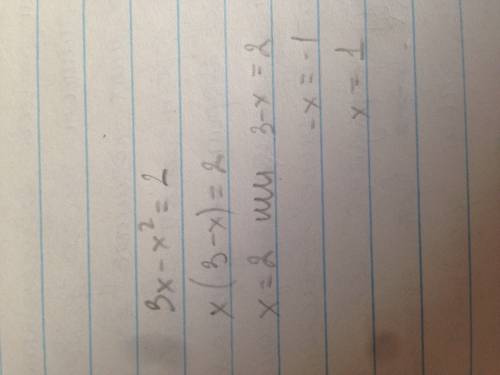 3x - x² = 2
x(3-x) = 2
x = 2 или 3-x = 2
-x = -1
x = 1